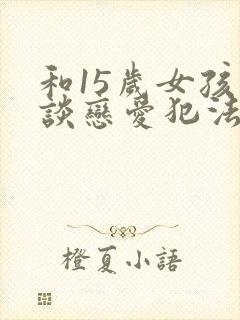 和15歲女孩
談戀愛犯法
橙夏小語